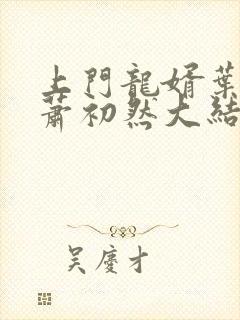 上門龍婿葉
蕭初然大結
吳慶才